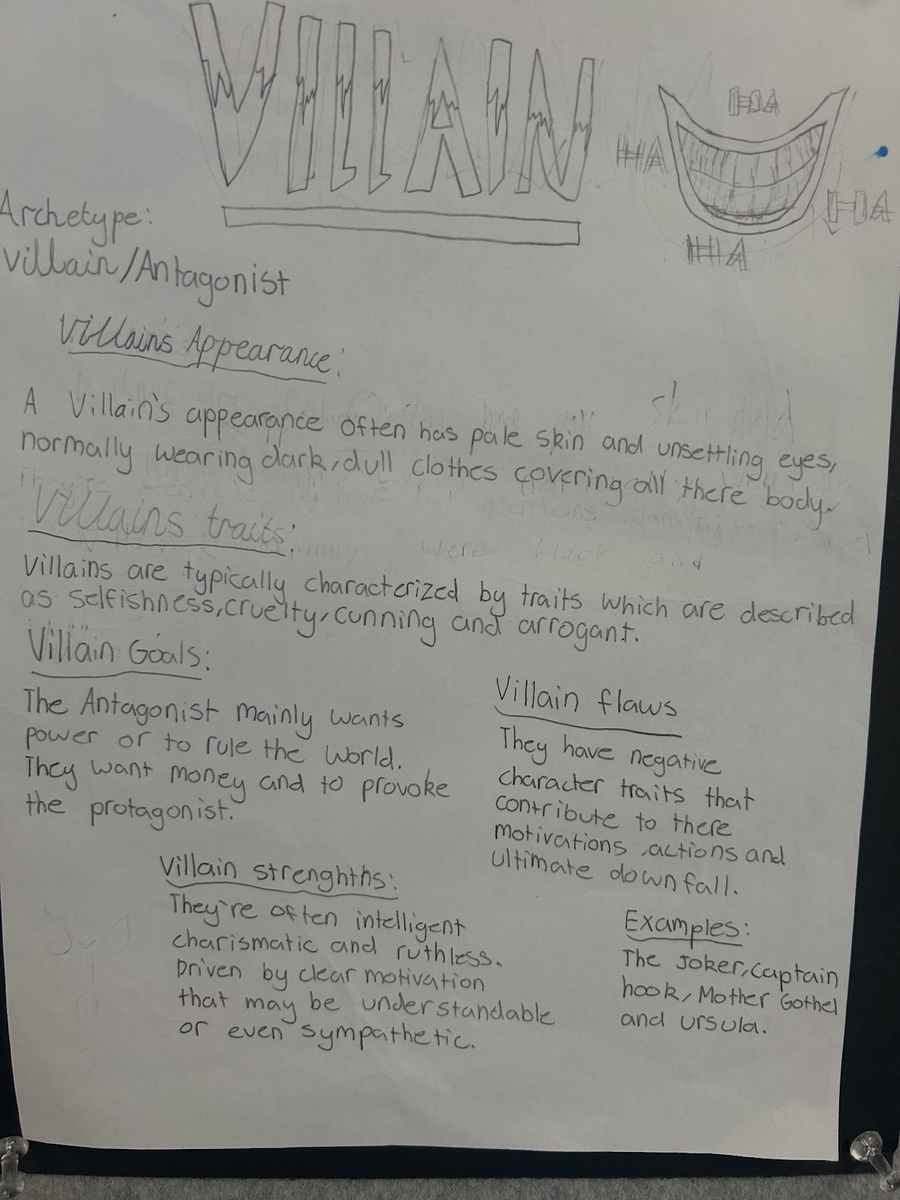 VILLAIN
HA
HA
HA
HA
Archetype:
Villain/Antagonist
Villains Appearance:
A Villain's appearance often has pale skin and unsettling eyes,
normally wearing dark, dull clothes covering all there body.
Villains traits:
Villains are typically characterized by traits which are described
as selfishness, cruelty, cunning and arrogant.
Villain Goals:
The Antagonist mainly wants
power or to rule the world.
They want money and to provoke
the protagonist.
Villain flaws
They have negative
character traits that
contribute to there
motivations ,actions and
ultimate downfall.
Villain strenghths:
They're often intelligent
charismatic and ruthless.
Driven by clear motivation
that may be understandable
or even sympathetic.
Examples:
The Joker, Captain
hook, Mother Gothel
and ursula.